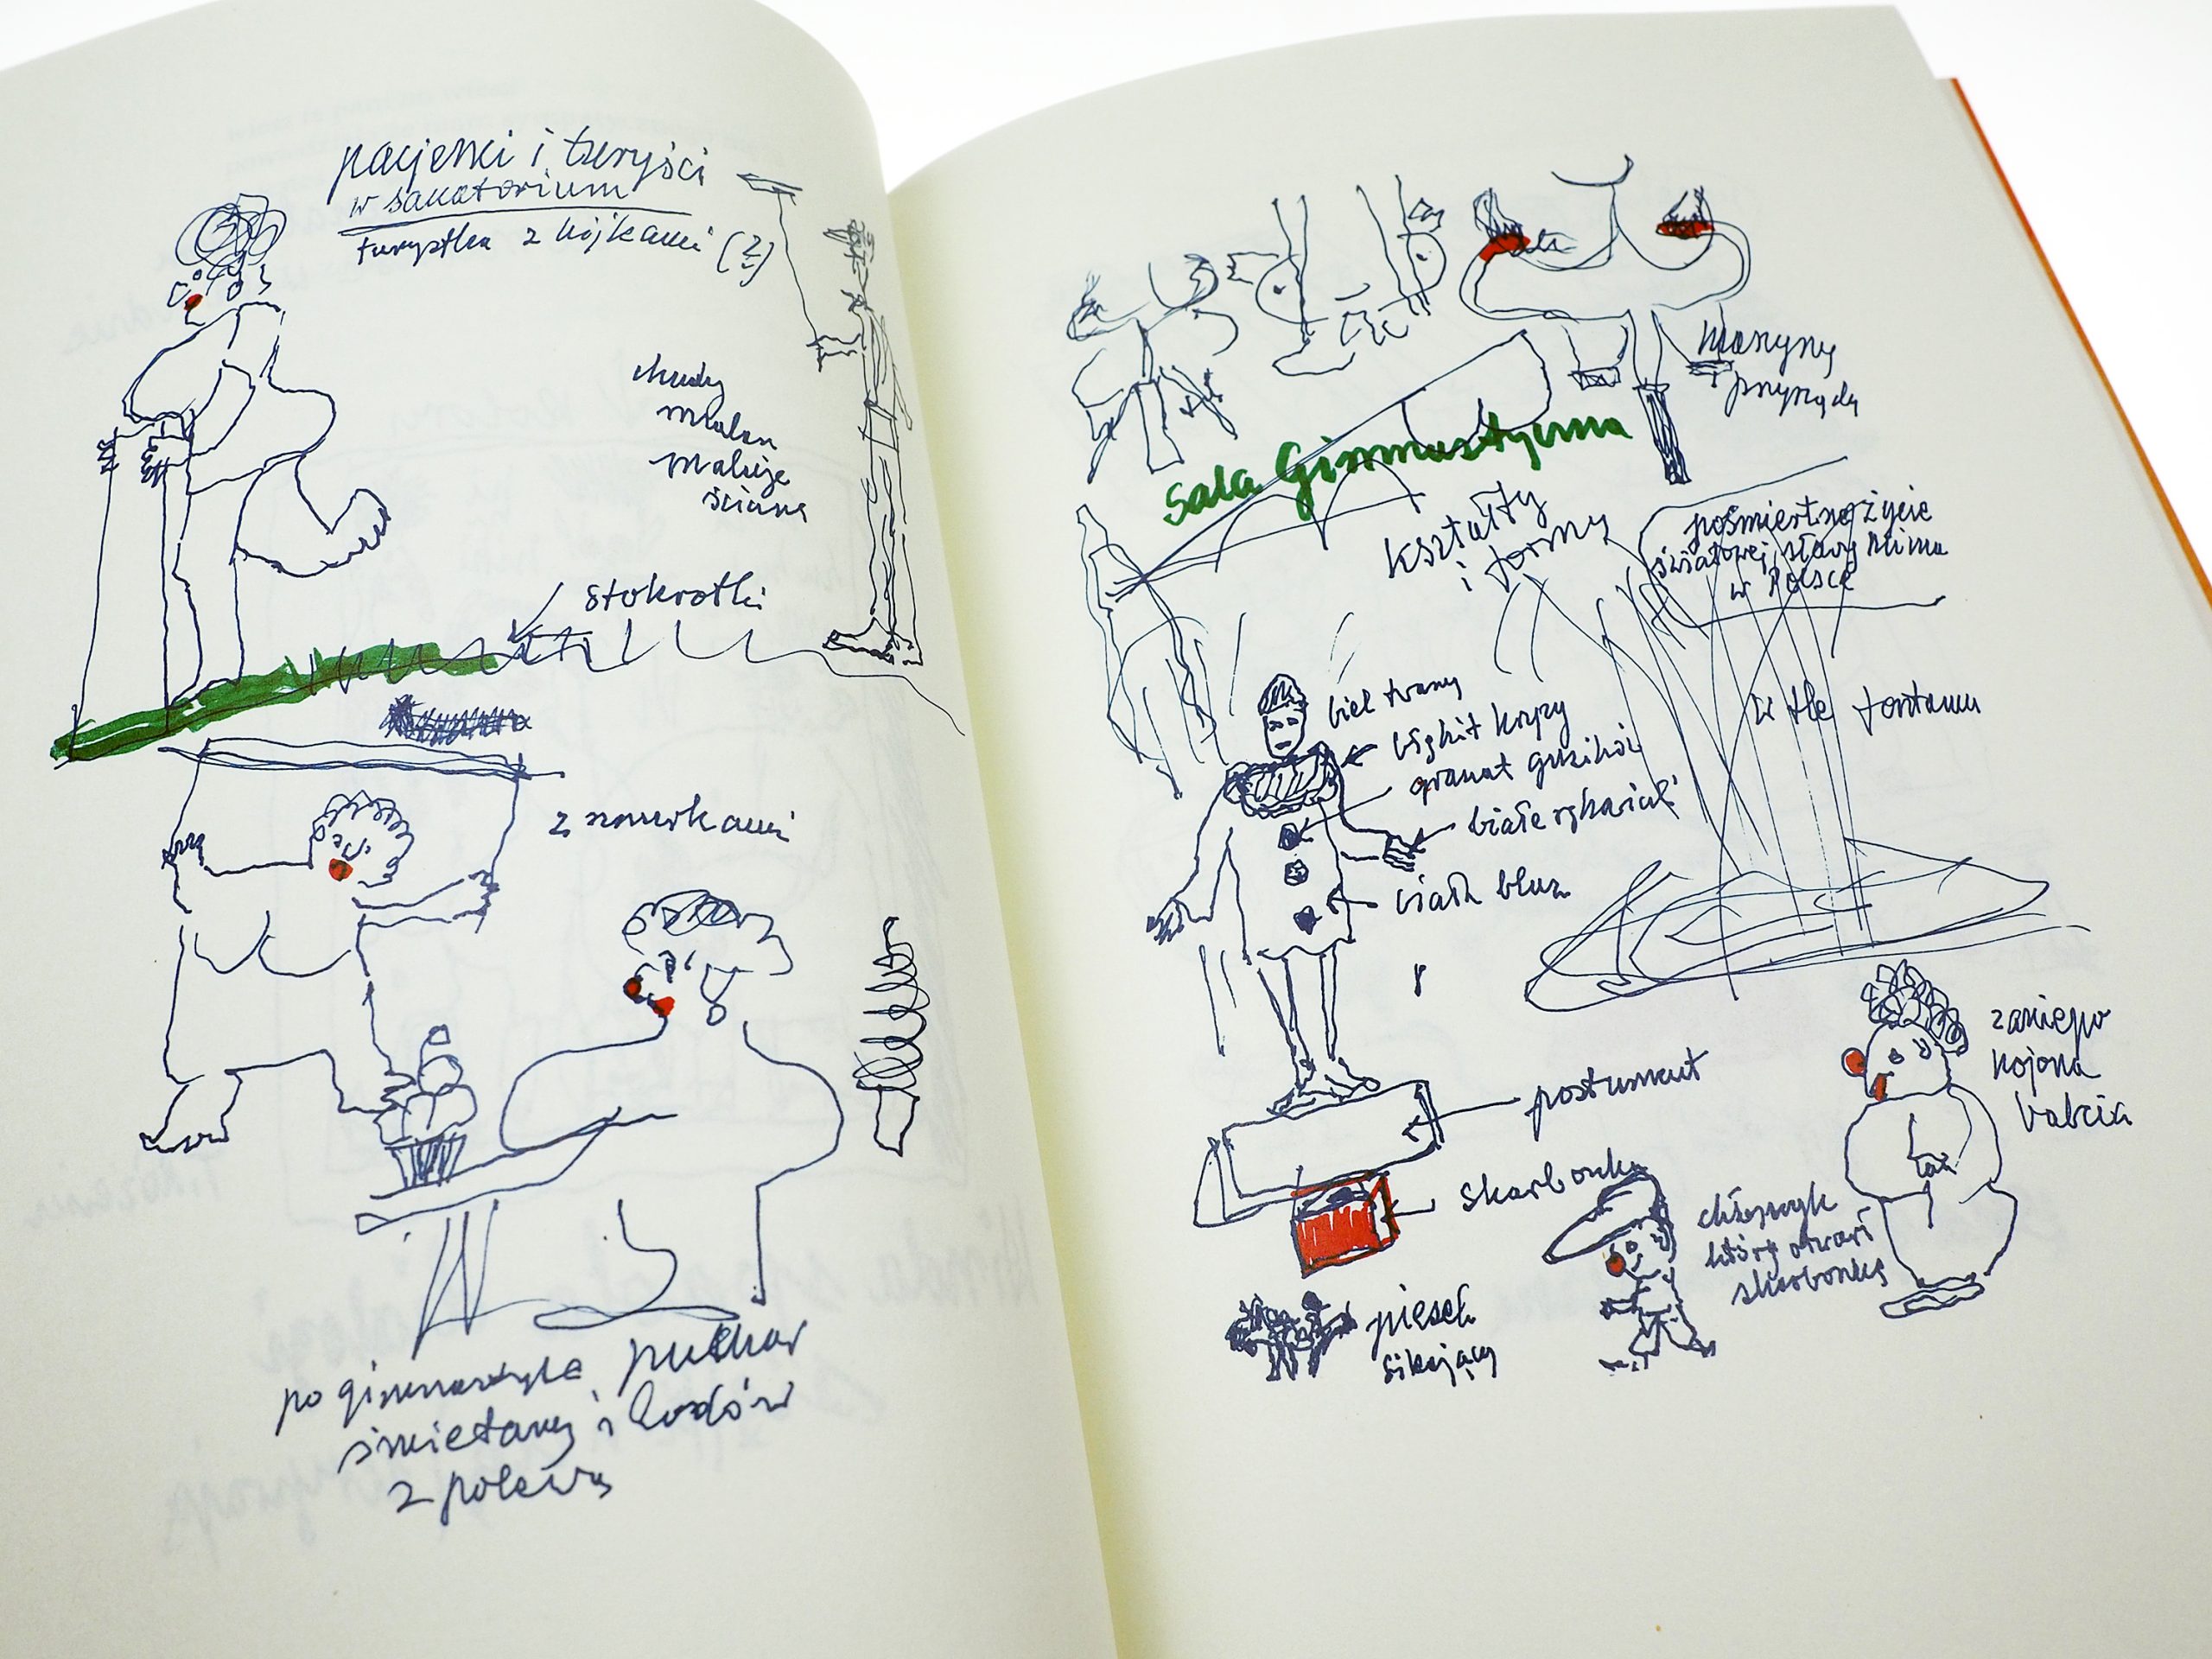 pacjenci i turyści
w sanatorium
turystka z kijkami (2)
chudy
malarz
maluje
ścianę
stokrotki
po gimnastyce, puchar
śmietany i lodów
z polewą
maszyny
i przyrządy
Sala Gimnastyczna
kształty
i formy
pośmiertne życie
światowej sławy mima
w Polsce
w tle fontanna
biel twarzy
błękit kryzy
granat guzików
białe rękawiczki
biała bluza
postument
skarbonka
piesek
sikający
chłopczyk
który otwarł
skarbonkę
zaniepo
kojona
babcia